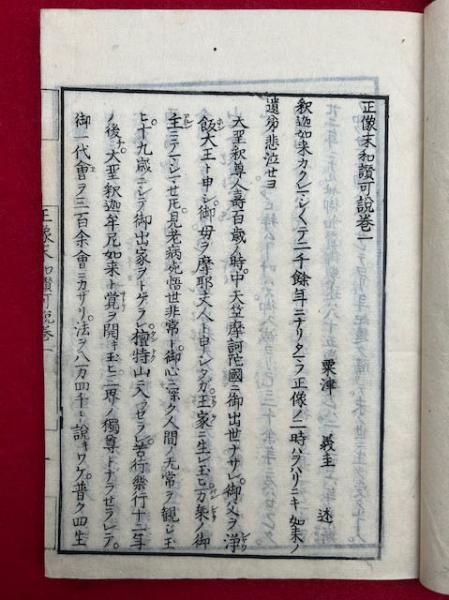 正像末和讃可説巻一
粟津　義圭　述
釈迦如来カクレマシ〳〵テ二千餘年ニナリタマフ正像ノ二時ハヲハリニキ如来ノ
遺弟悲泣セヨ
大聖釈尊人壽百歳ノ時中天笠摩訶陀國ニ御出世ナサレ御父ヲ浄
飯大王ト申シ御母ヲ摩耶夫人ト申シタガ王家ニ生レ玉ヒ万乗ノ御
主ニテマシマセ𪜈見老病死悟世非常ト御心ニ深ク人間ノ无常ヲ観ジ玉
ヒ十九歳ニシテ御出家ヲトゲラレ檀特山ニ入ラセラレ苦行樂行十二年
ノ後大聖釈迦牟尼如来ト覚ヲ開キ玉ヒ三界ノ獨尊トナラセラレテ
御一代會ヲ三百余會ニカザリ法ヲ八万四千ト説キワケ普ク四生
正像末和讃可説巻一